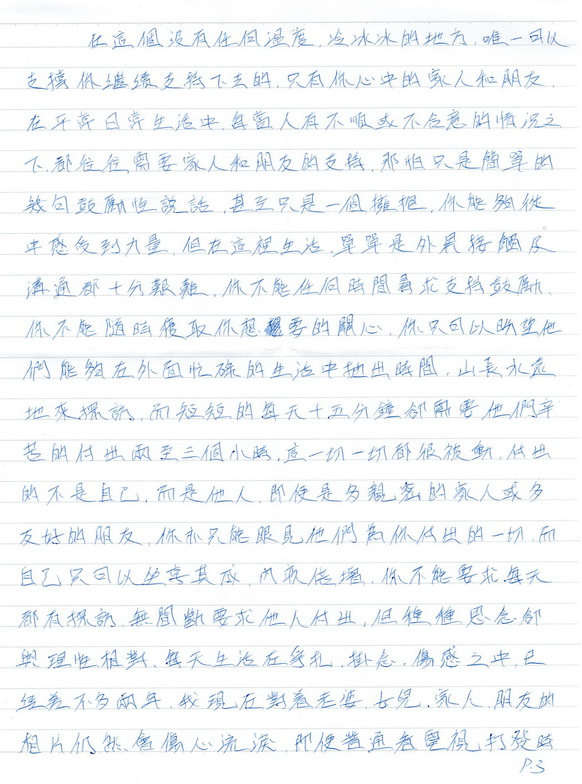 在這個没有任何溫度，冷冰冰的地方，唯一可以
支撐你繼續支持下去的，只有你心中的家人和朋友，
在平常日常生活中，每當人有不順或不合意的情況之
下，都往往需要家人和朋友的支持，那怕只是簡單的
幾句鼓勵性說話，甚至只是一個擁抱，你能夠從
中感受到力量，但在這裡生活，單單是外界接觸及
溝通都十分艱難，你不能任何時間尋求支持鼓勵，
你不能隨時獲取你想要的關心，你只可以盼望他
們能夠在外面忙碌的生活中抽出時間，山長水遠
地來探訪，而短短的每天十五分鐘卻需要他們辛
苦的付出兩至三個小時，這一切一切都很被動，付出
的不是自己，而是他人，即使是多親密的家人或多
友好的朋友，你亦只能眼見他們為你付出的一切，而
自己只可以坐享其成，內疚倍增，你不能要求每天
都有探訪，無間斷要求他人付出，但種種思念卻
與理性相對，每天生活在爭扎，掛念，傷感之中，已
經差不多兩年，我現在對着老婆，女兒，家人，朋友的
相片仍然會傷心流淚，即使普通看電視，打發時
P.3